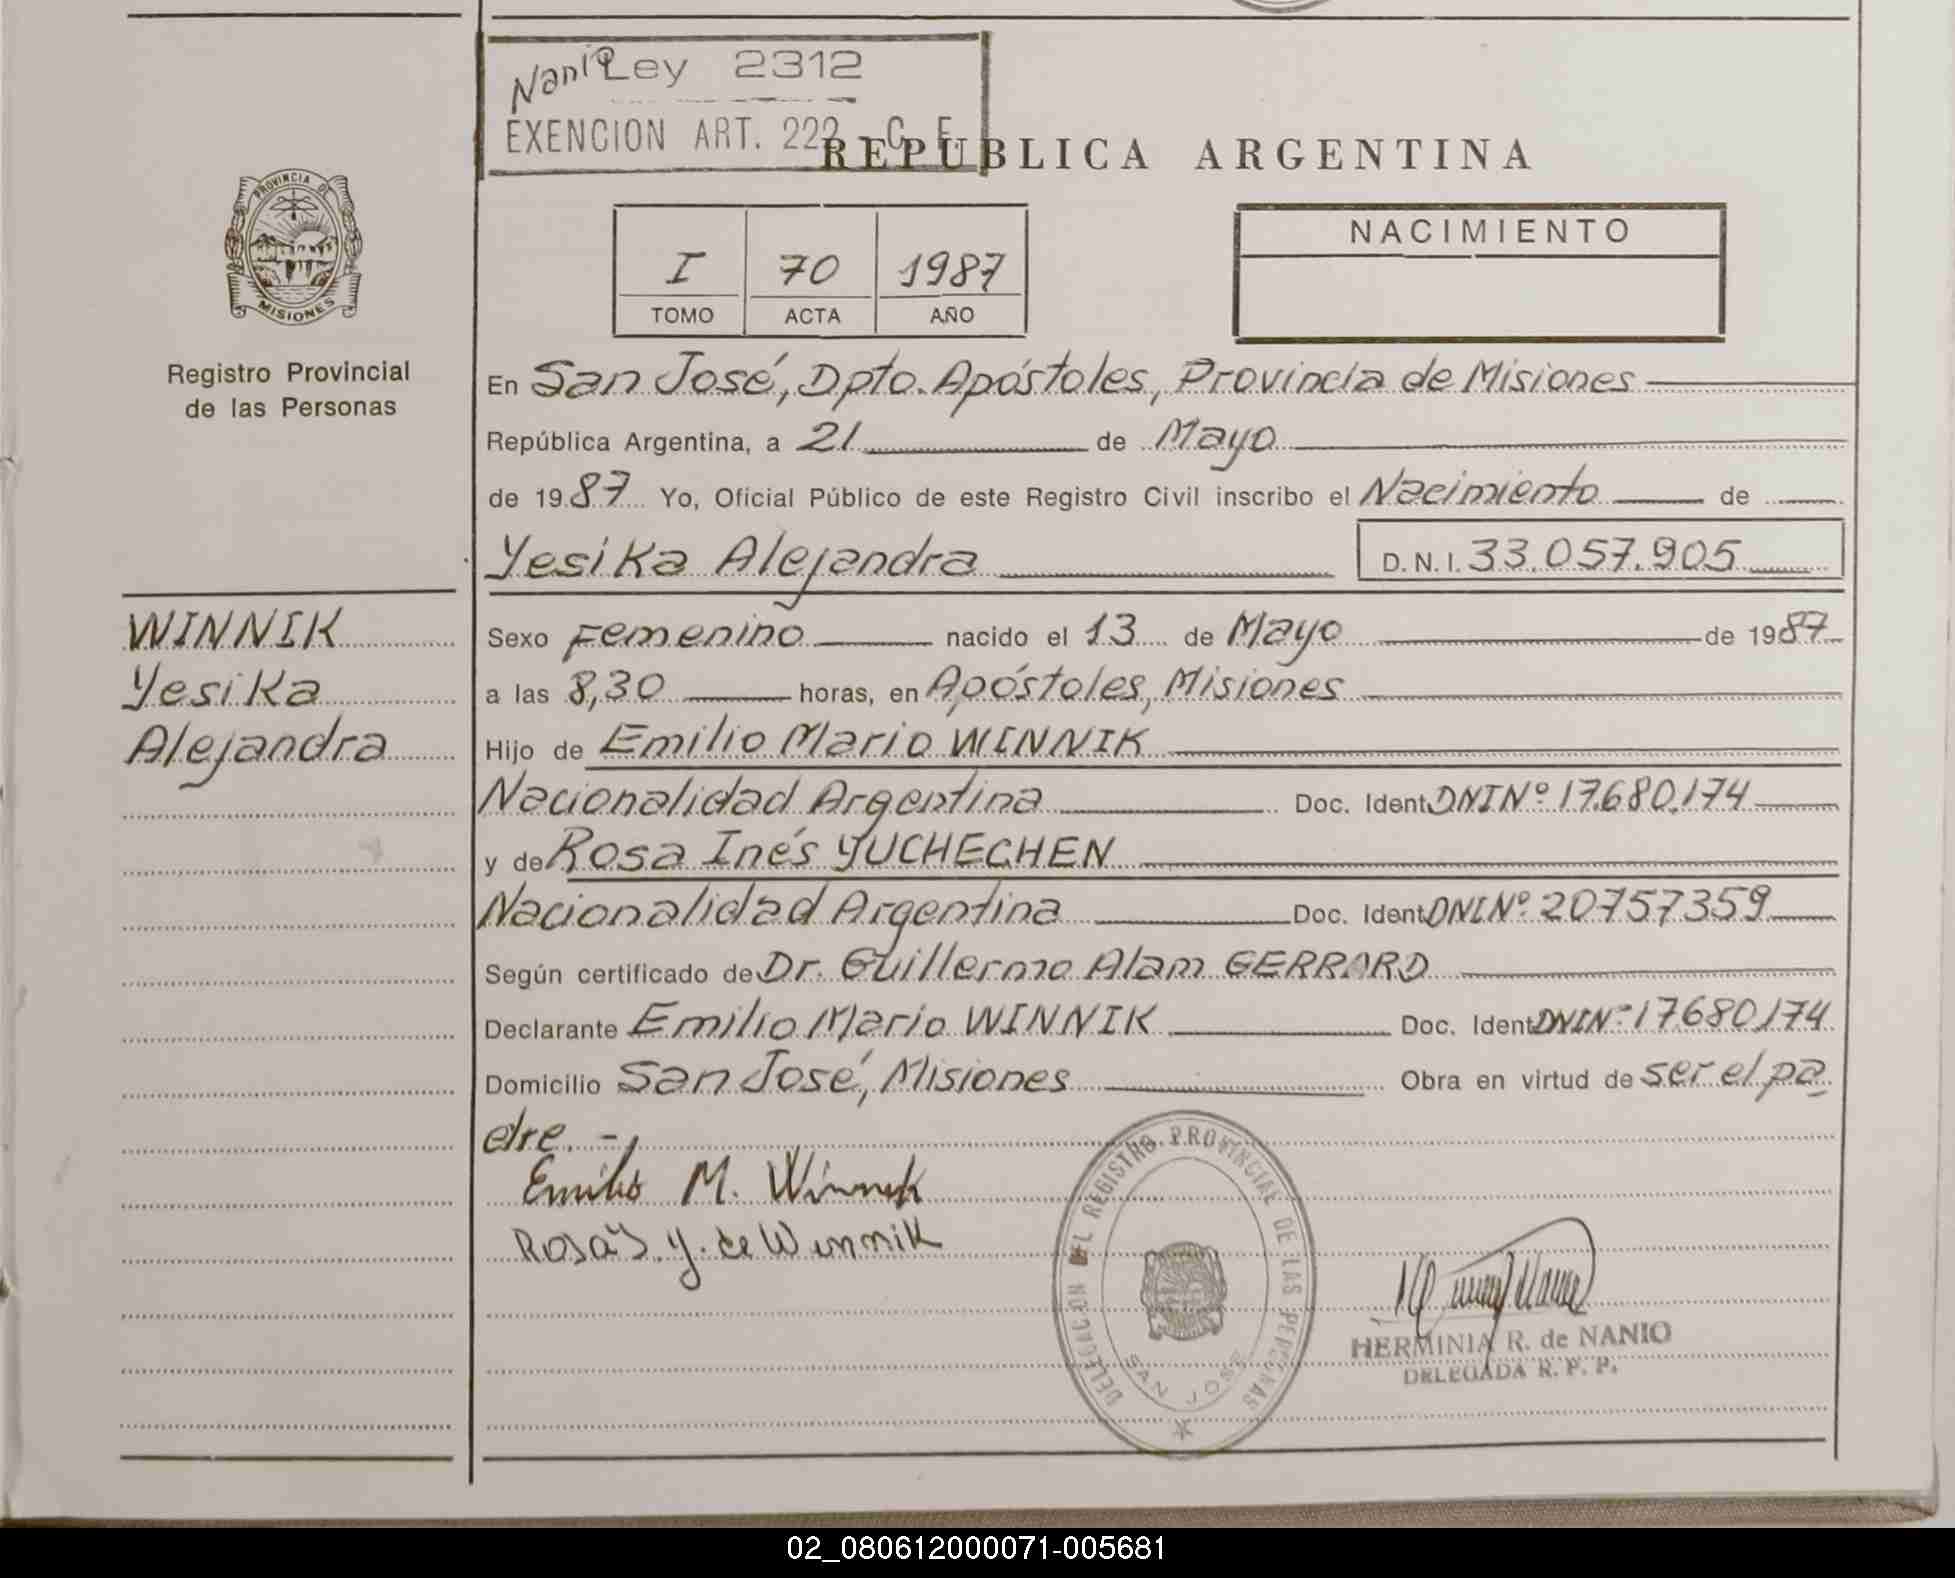 Ley 2312
EXENCION ART. 222 - C. F.
REPUBLICA ARGENTINA
PROVINCIA DE
MISIONES
Registro Provincial
de las Personas
I 70 1987
TOMO ACTA AÑO
NACIMIENTO
En San José, Dpto. Apóstoles, Provincia de Misiones
República Argentina, a 21 de Mayo
de 1987 Yo, Oficial Público de este Registro Civil inscribo el Nacimiento de
Yesika Alejandra D.N.I. 33.057.905
WINNIK
Yesika
Alejandra
Sexo Femenino nacido el 13 de Mayo de 1987
a las 8,30 horas, en Apóstoles, Misiones
Hijo de Emilio Mario WINNIK
Nacionalidad Argentina Doc. Ident DNI Nº 17.680.174
y de Rosa Inés YUCHECHEN
Nacionalidad Argentina Doc. Ident DNI Nº 20757359
Según certificado de Dr. Guillermo Alam GERRARD
Declarante Emilio Mario WINNIK Doc. Ident DNI Nº 17680174
Domicilio San José, Misiones Obra en virtud de ser el pa
dre. -
Emilio M. Winnik
Rosa Y. de Winnik
DELEGACION DEL REGISTRO PROVINCIAL DE LAS PERSONAS
SAN JOSE
HERMINIA R. de NANIO
DELEGADA R. P. P.
02_080612000071-005681